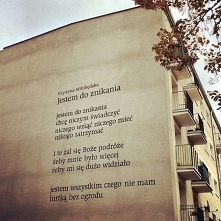 Krystyna Miłobędzka
Jestem do znikania
jestem do znikania
chcę niczym świadczyć
niczego wziąć niczego mieć
nikogo zatrzymać
i te żal się Boże podróże
żeby mnie było więcej
żeby mi się dużo widziało
jestem wszystkim czego nie mam
furtką bez ogrodu